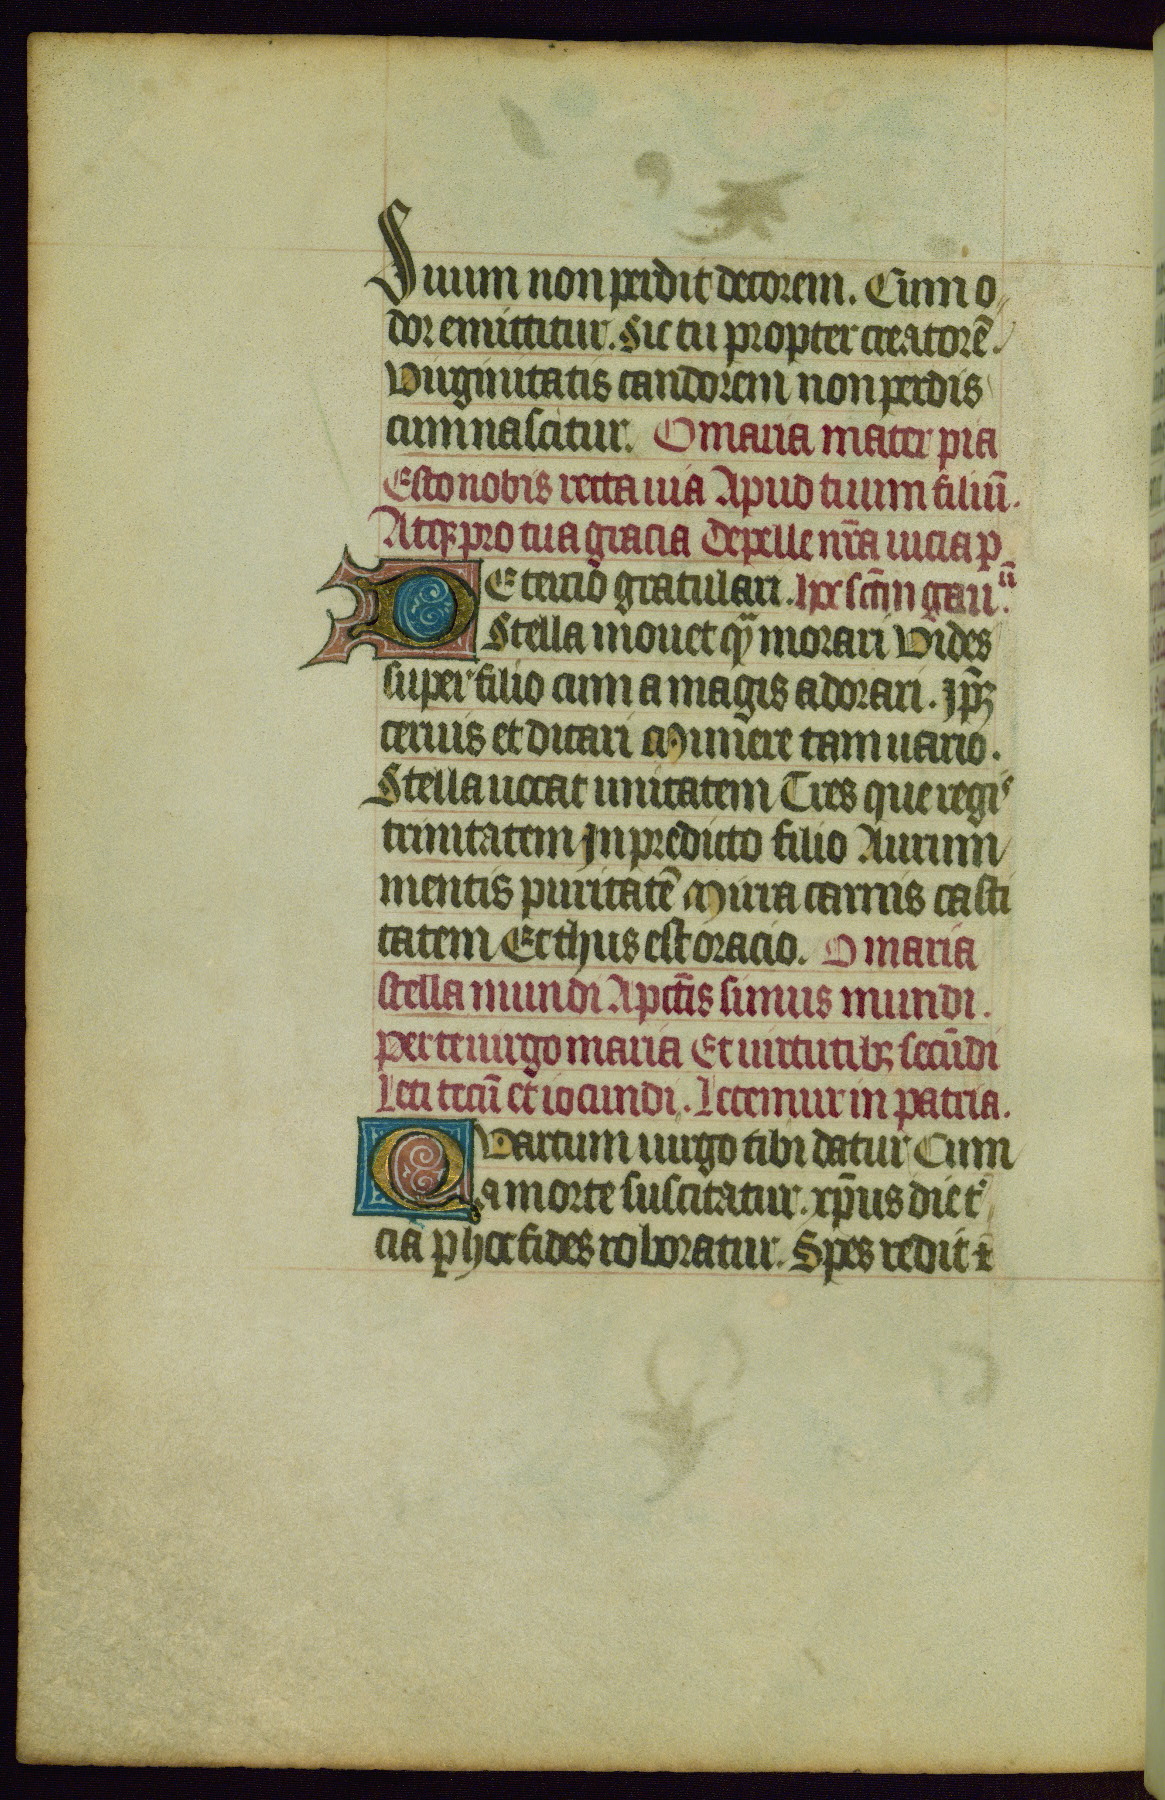 Suum non perdit decorem. Cum o
dor emittitur. Sic tu propter creatorē.
Virginitatis candorem non perdis
cum nascitur. O maria mater pia
Esto nobis recta via Apud tuum filiū.
Atqꝫ pro tua gracia Depelle nr̄a vicia p
De tercio gratulari. hoc sc̄m gau
Stella movet qꝫ morari Vides
super filio cum a magis adorari. Ip̄ꝫ
cervis et ditari Munere tam vario.
Stella vocat unitatem Tres que regis
trinitatem In predicto filio Aurum
mentis puritatē Mirra carnis casti
tatem Et thus est oracio. O maria
stella mundi A pctīs simus mundi.
Per te virgo maria Et virtutibꝫ secūdi
Leti tecū et iocundi. Letemur in patria.
Quartum virgo tibi datur Cum
a morte suscitatur. xp̄us die t
cia p hoc fides roboratur. Spes redit